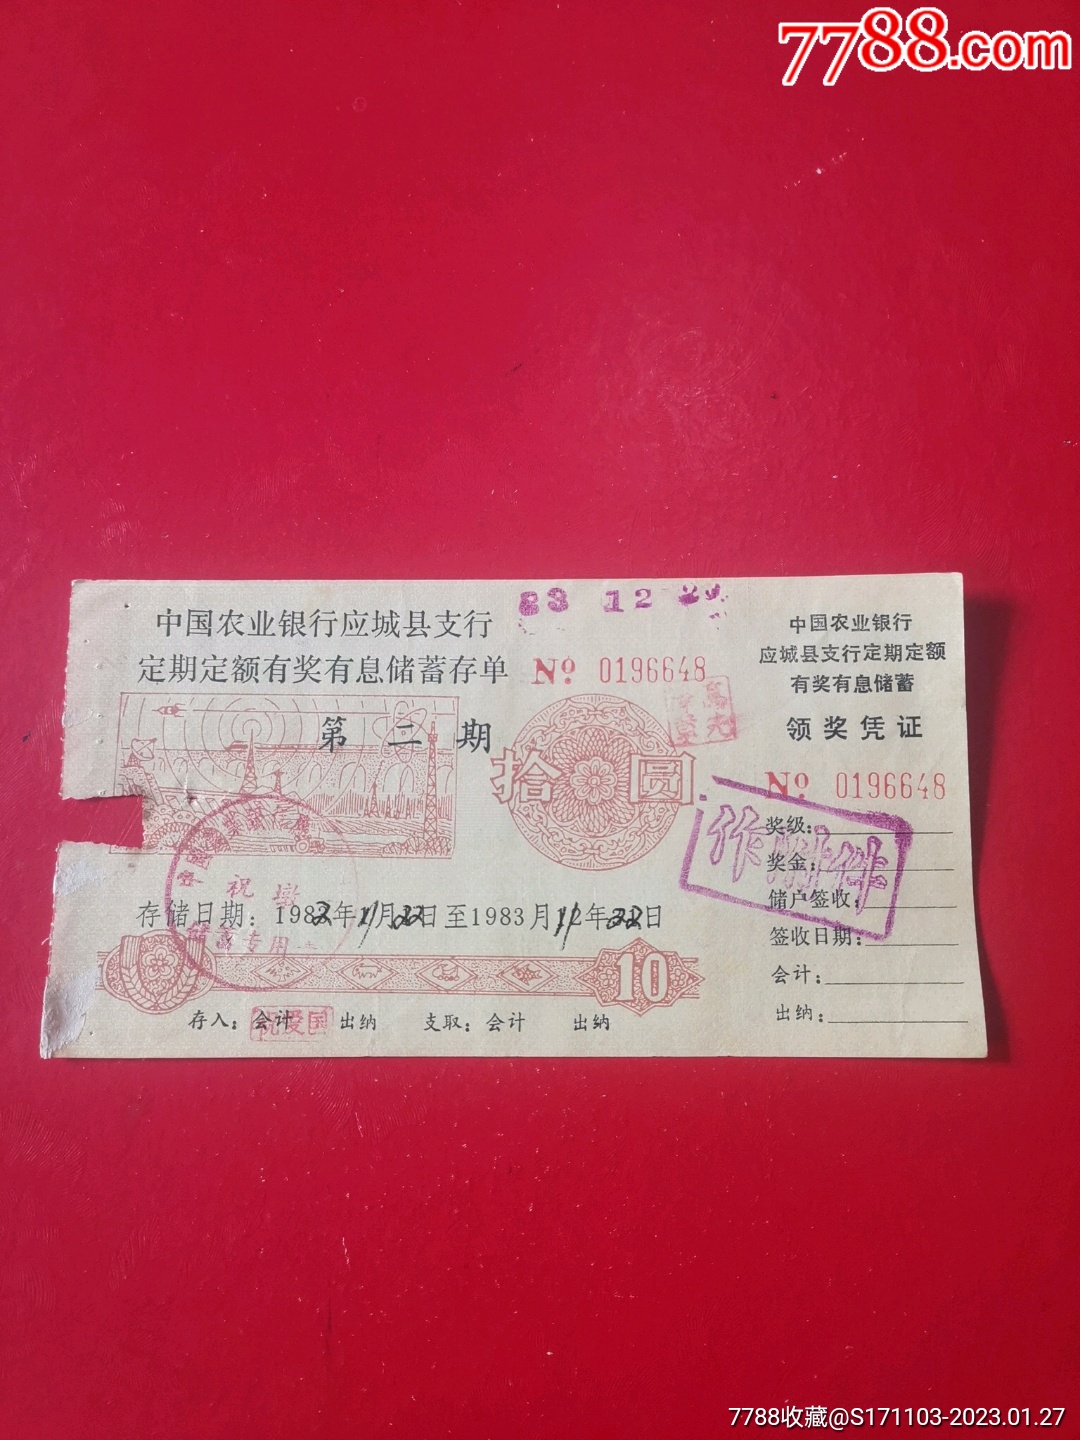 7788.com
83 12 2
中国农业银行应城县支行
定期定额有奖有息储蓄存单
№ 0196648
第二期
拾圆
存储日期：1982年11月22日至1983月12年22日
储蓄专用
10
存入：会计 出纳 支取：会计 出纳
祝爱国
中国农业银行
应城县支行定期定额
有奖有息储蓄
领奖凭证
№ 0196648
作附件
奖级：
奖金：
储户签收：
签收日期：
会计：
出纳：
7788收藏@S171103-2023.01.27